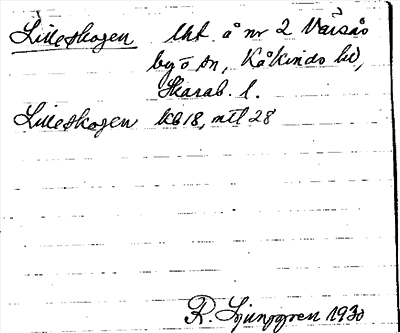 Lilleskogen lht. å nr 2 Varsås
by o sn, Kåkinds hd,
Skarab. l.
Lilleskogen kb 18, mtl 28
R. Ljunggren 1930